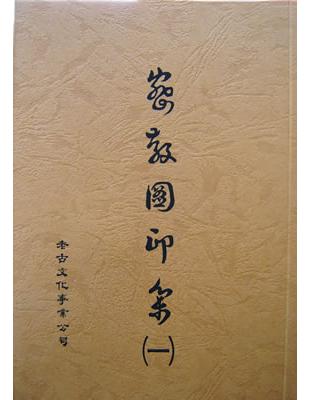 密教圖印集(一)
老古文化事業公司